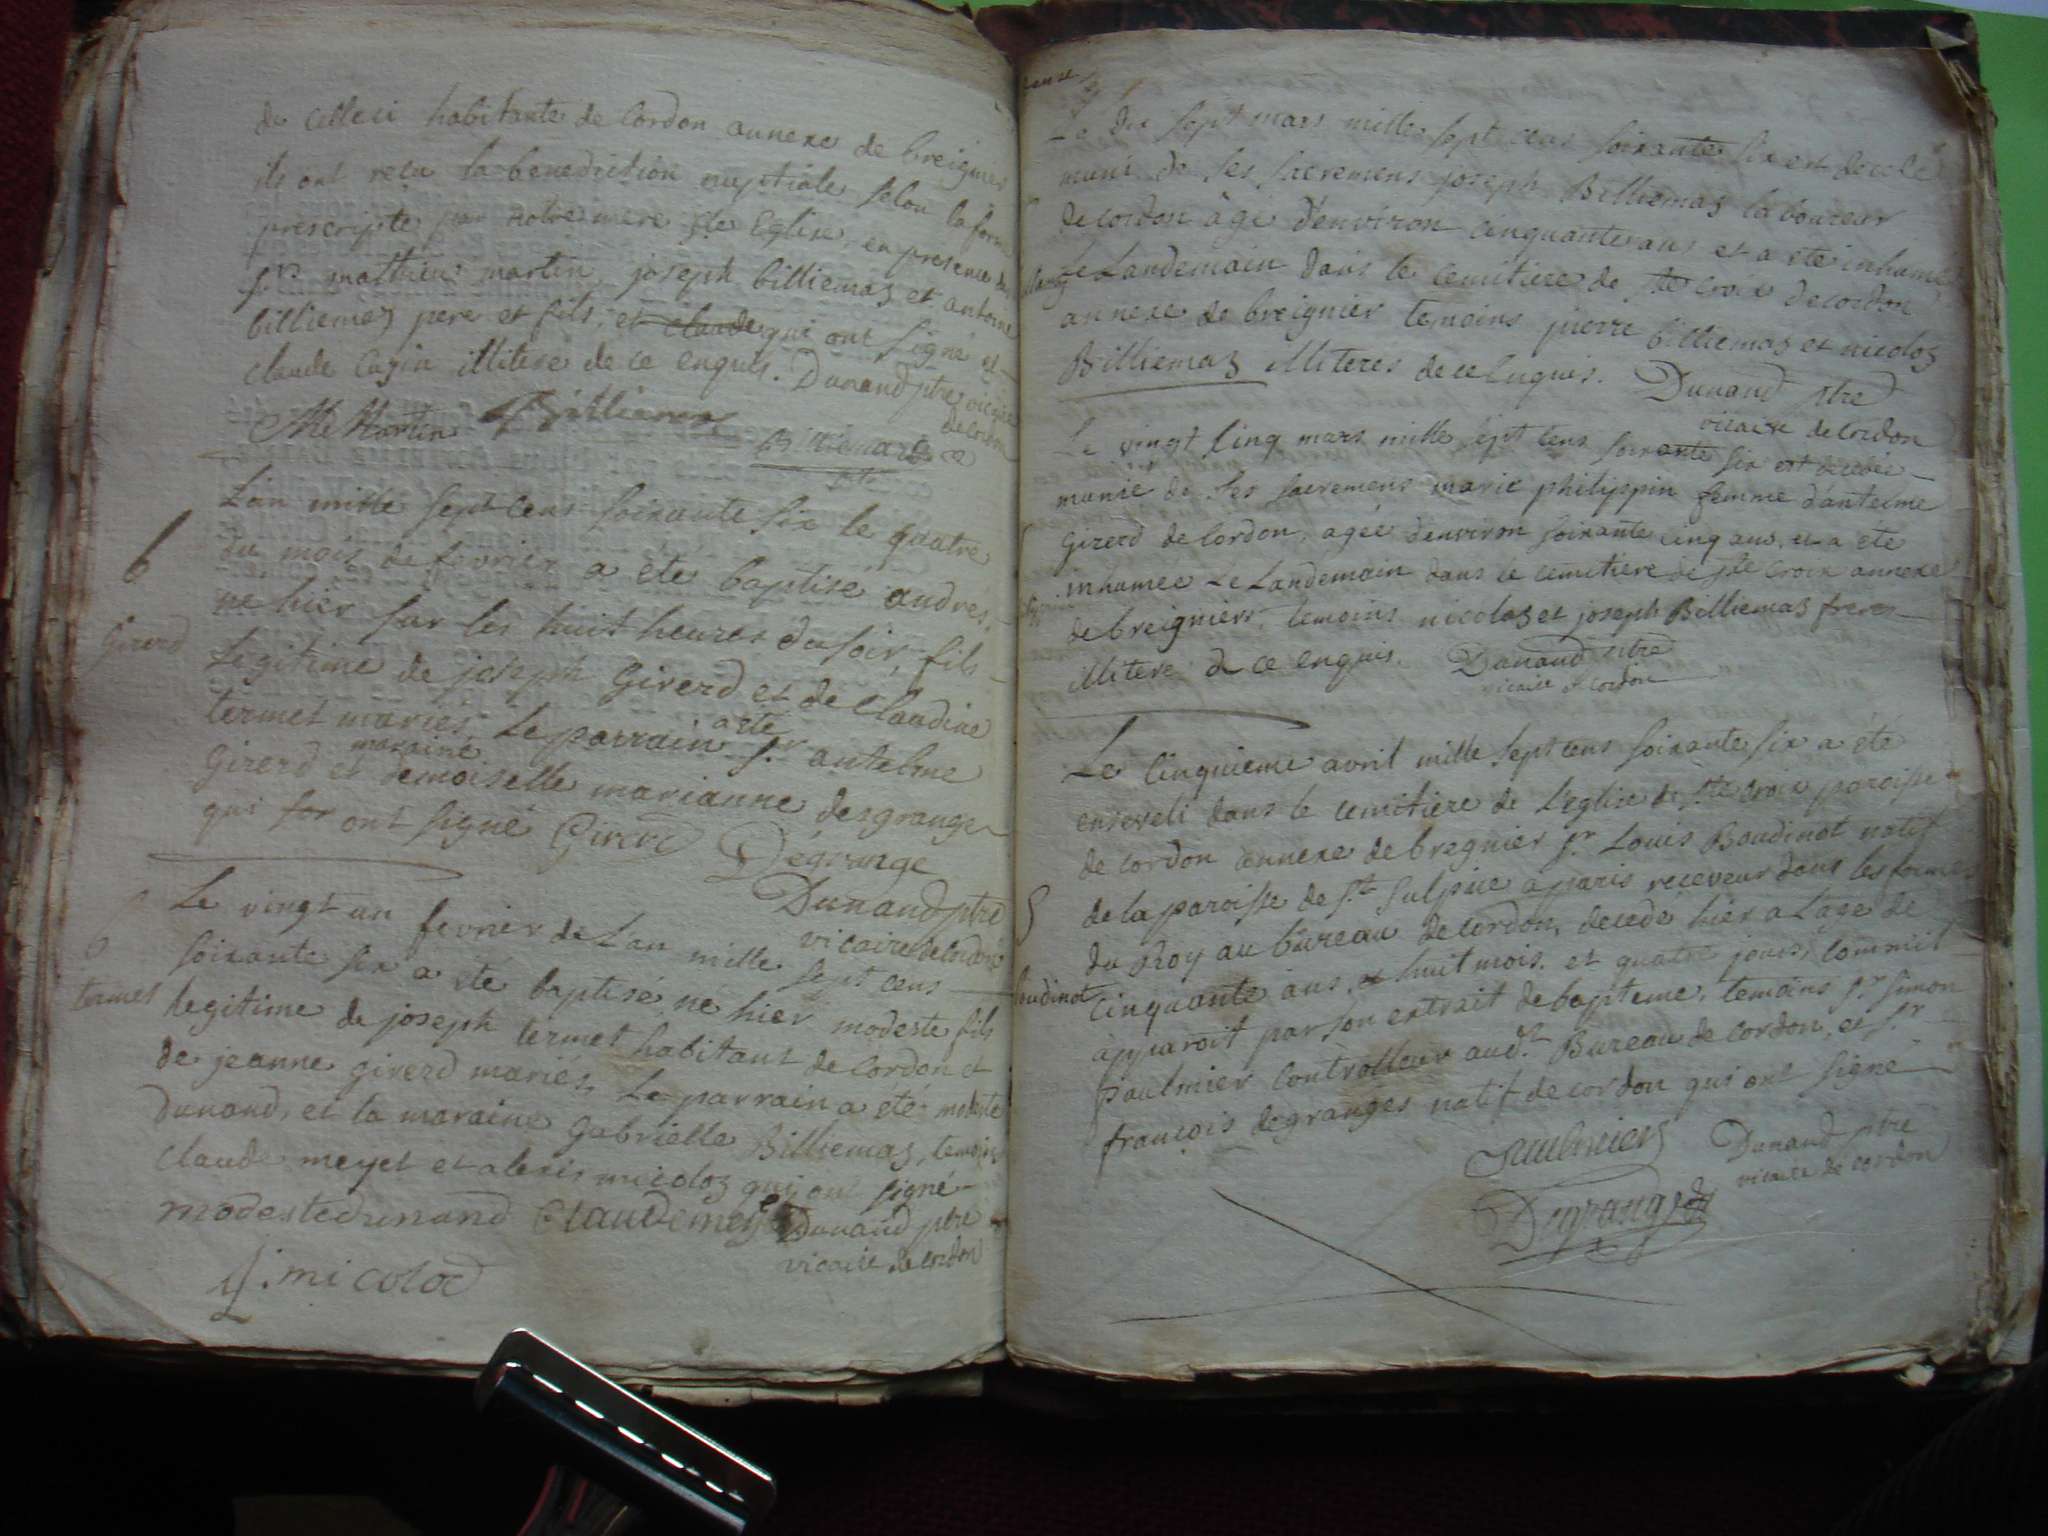 de celleci habitante de Cordon annexe de breignier
ils ont reçu la benediction nuptiale selon la forme
prescripte par notre mere Ste Eglise en presence de
Srs mathieu martin, joseph billiemaz et antoine
billiemaz pere et fils, et claude qui ont signé et
claude Cazin illiteré de ce enquis. Dunand ptre vicaire
de Cordon
Martin Billiemaz
Billiemaz
L'an mille sept cens soixante six le quatre
6
du mois de fevrier a été baptisé andré
né hier sur les huit heures du soir, fils
Girerd
Legitime de joseph Girerd et de Claudine
termet mariés, Le parrain a été Sr antelme
Girerd et maraine demoiselle marianne desgranges
qui ont signé Girerd
Degrange
Dunand ptre
vicaire de Cordon
Le vingt un fevrier de L'an mille sept cens
6
soixante six a été baptisé né hier modeste fils
termet
legitime de joseph termet habitant de Cordon et
de jeanne girerd mariés, Le parrain a été modeste
Dunand, et la maraine Gabrielle Billiemaz, temoins
Claude meyet et alexis micoloz qui ont signé
modeste dunand Claude meyet Dunand ptre
vicaire de Cordon
micolod
Le dix sept mars mille sept cens soixante six est decedé
muni de ses sacremens joseph Billiemaz laboureur
de cordon âgé d'environ cinquante ans et a été inhumé
Le Landemain dans le cemitiere de Ste Croix de cordon
annexe de breignier temoins pierre billiemaz et nicoloz
Billiemaz illiteres de ce Enquis. Dunand ptre
vicaire de cordon
Le vingt Cinq mars mille sept cens soixante six est decedée
munie de ses sacremens marie phelippin femme d'antelme
Girerd de Cordon, agée d'environ soixante cinq ans, et a été
inhamée Le Landemain dans le cemitiere de Ste Croix annexe
de breigniers, temoins nicoloz et joseph Billiemaz freres
illitere de ce enquis. Dunand ptre
vicaire de cordon
Le Cinquieme avril mille sept cens soixante six a été
enseveli dans le cemitiere de L'eglise de Ste Croix paroisse
de cordon annexe de bregnier Sr Louis Boudinot natif
5
de la paroisse de St Sulpice a paris receveur dans les fermes
du Roy au bureau de cordon, decedé hier a L'age de
Boudinot
Cinquante ans, huit mois, et quatre jours, comme il
apparoit par son extrait de bapteme, temoins Sr Simon
paulmier Controlleur aud.t Bureau de Cordon, et Sr
françois degranges natif de cordon qui ont signé
Paulmier Dunand ptre
vicaire de cordon
Degranges